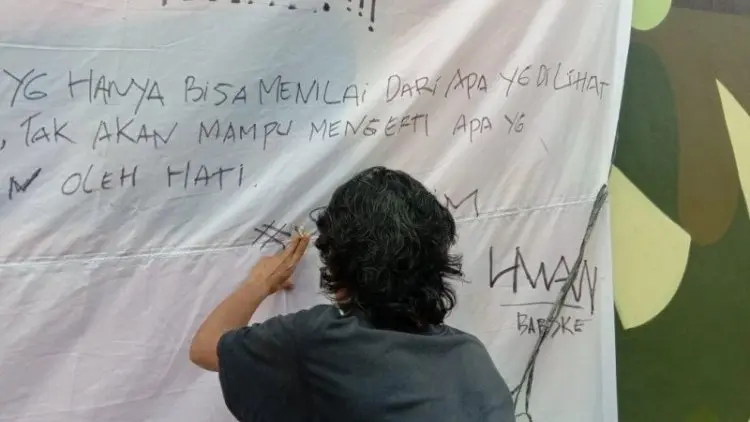 YG HANYA BISA MENILAI DARI APA YG DILIHAT
, TAK AKAN MAMPU MENGERTI APA YG
OLEH HATI.
#
LAWAN
BABSKE